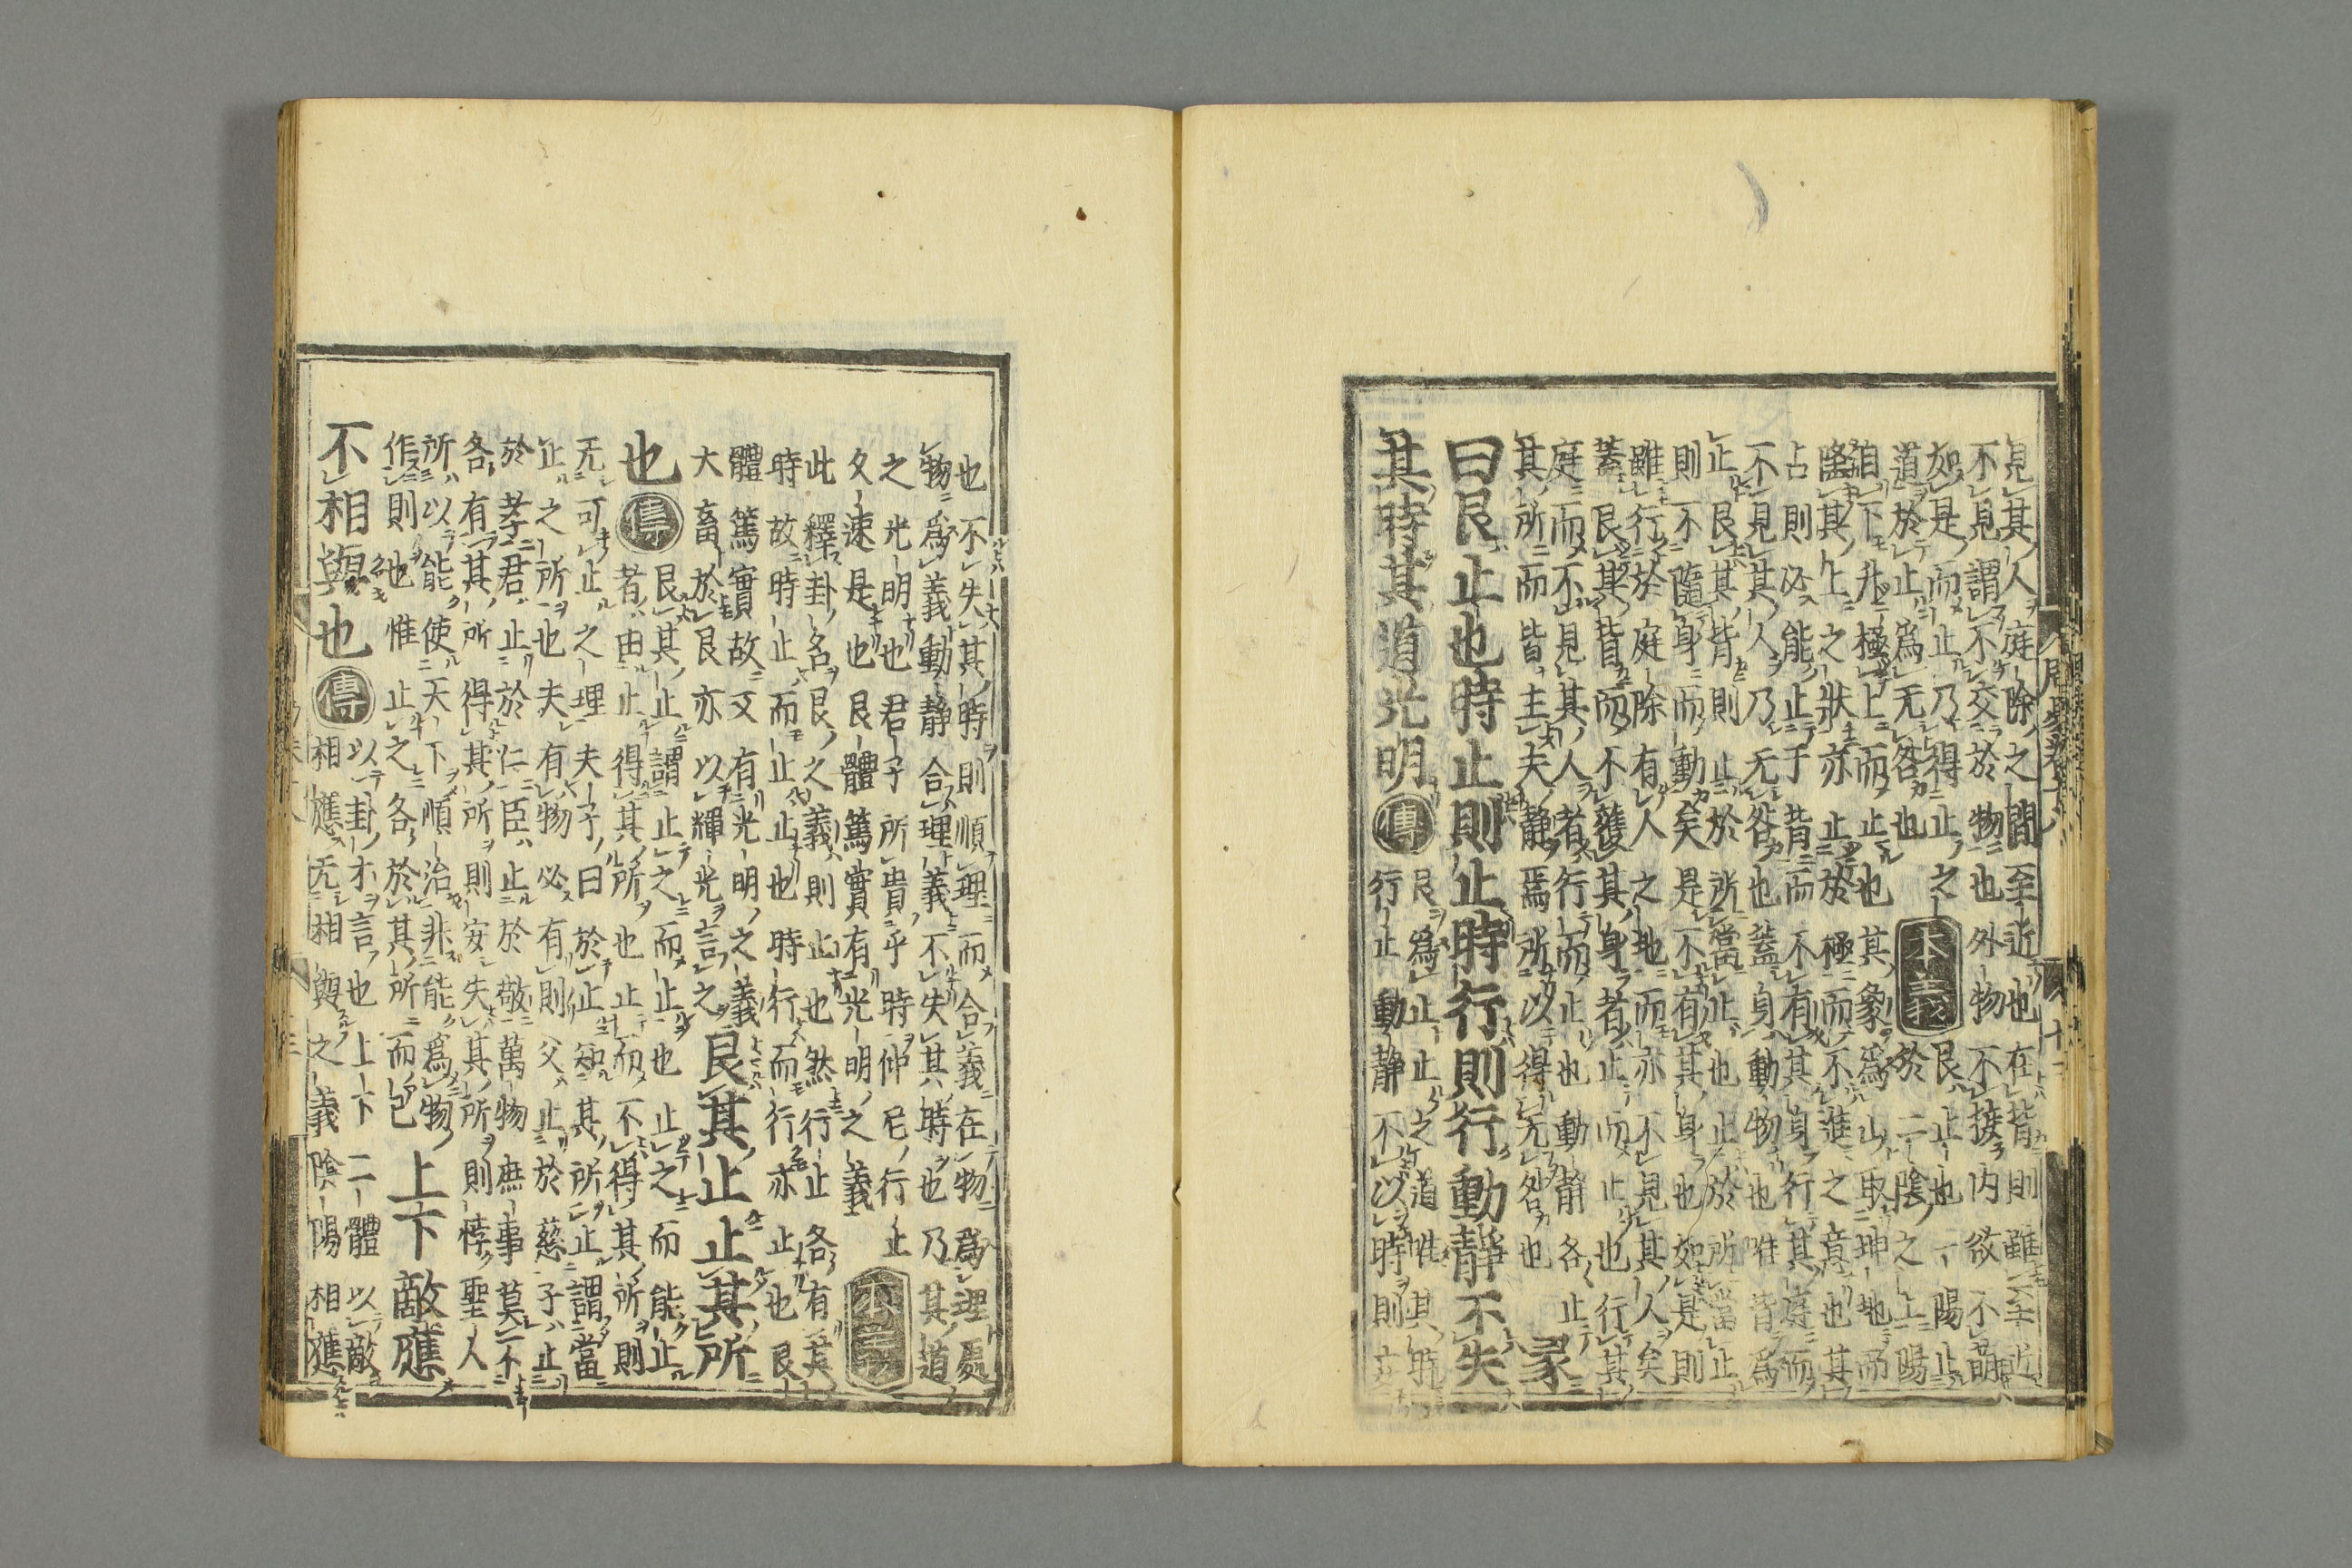 見其人庭除之間至近也在背則雖至近
不見謂不交於物也外物不接内欲不萌
如是而止乃得止之
道於止爲无咎也
本義
艮止也一陽止
於二陰之上陽
自下升極上而止也其象爲山取坤地而
隆其上之狀亦止於極而不進之意也其
占則必能止于背而不有其身行其庭而
不見其人乃无咎也蓋身動物也唯背爲
止艮其背則止於所當止也止於所當止
則不隨身而動矣是不有其身也如是則
雖行於庭除有人之地而亦不見其人矣
蓋艮其背而不獲其身者止而止也行其
庭而不見其人者行而止也動静各止
其所而皆主夫静焉所以得无咎也
彖
曰艮止也時止則止時行則行動静不失
其時其道光明 傳
艮爲止止之道唯其時
行止動静不以時則妄
也不失其時則順理而合義在物爲理處
物爲義動静合理義不失其時也乃其道
之光明也君子所貴乎時仲尼行止
久速是也艮體篤實有光明之義
本義
此釋卦名艮之義則止也然行止各有其
時故時止而止止也時行而行亦止也艮
體篤實故又有光明之義
大畜於艮亦以輝光言之
艮其止止其所
也 傳
艮其止謂止之而止也止之而能止
者由止得其所也止而不得其所則
无可止之理夫子曰於止知其所止謂當
止之所也夫有物必有則父止於慈子止
於孝君止於仁臣止於敬萬物庶事莫不
各有其所得其所則安失其所則悖聖人
所以能使天下順治非能爲物
作則也惟止之各於其所而已
上下敵應
不相與也 傳
以卦才言也上下二體以敵
相應无相與之義陰陽相應